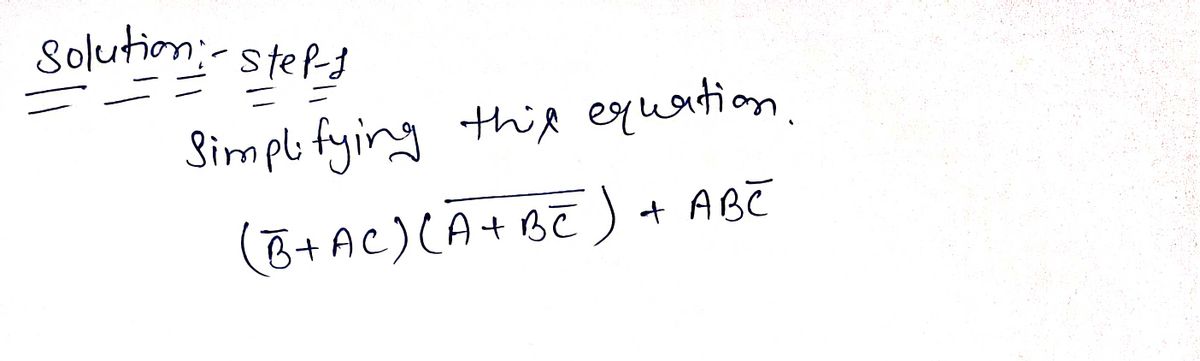 Solution:- Step-1
Simplifying this equation.
(B̅ + AC)(A̅ ̅+̅ ̅B̅C̅̅) + ABC̅